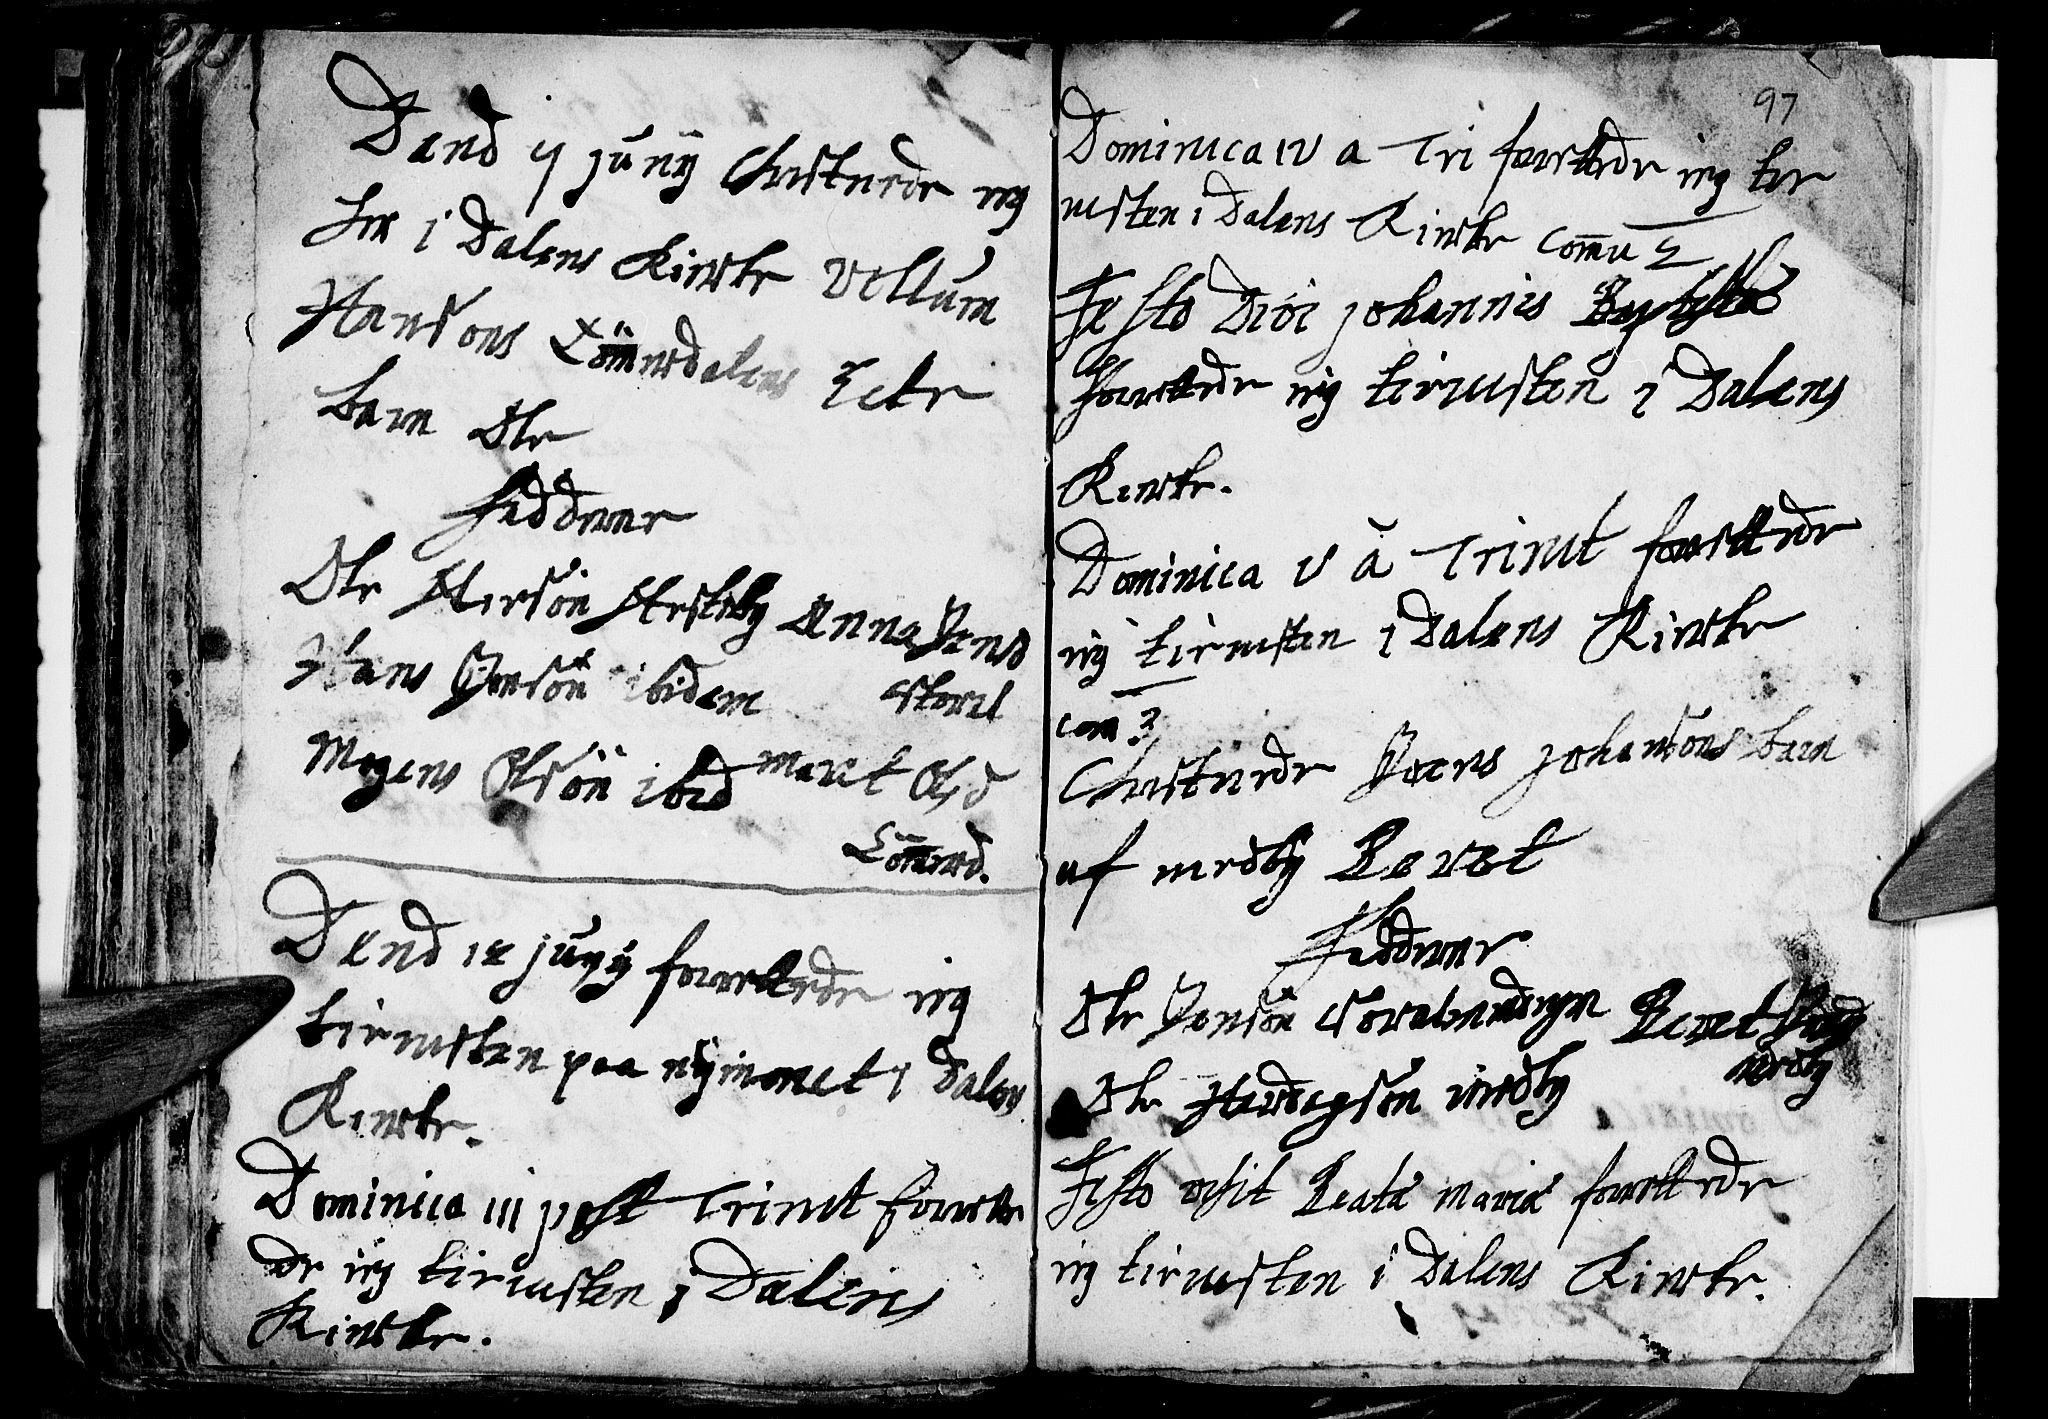 Dend 4 junÿ Christnede ieg
her i Dalens Kircke Villum
Hansöns Lömsdalens Ecte
barn Ole
Faddrene
Ole Iversön Anna Jensd
Hans Jonsön ibidem
Mogens Olsön ibid Marit Olsd
Lömsd.
Dend 12 junÿ forrettede ieg
tienisten paa nÿmonet i Dalens
Kircke.
Dominica iii post Trinit forrette
de ieg tienisten i Dalens
Kircke.
97
Dominica iv a Tri forrettede ieg tie
nisten i Dalens Kircke Comu 2
Festo Divi Johannis Baptistæ
forrettede ieg tienisten i Dalens
Kircke.
Dominica v a Trinit forrettede
ieg tienisten i Dalens Kircke
com 2
Christnede Joens Johansöns barn
af nerdbÿ Beret
Faddrene
Ole Jonsön Beret
nerdbÿ
Ole nerdbÿ
Festo visit Beatæ Mariæ forrettede
ieg tienisten i Dalens Kircke.